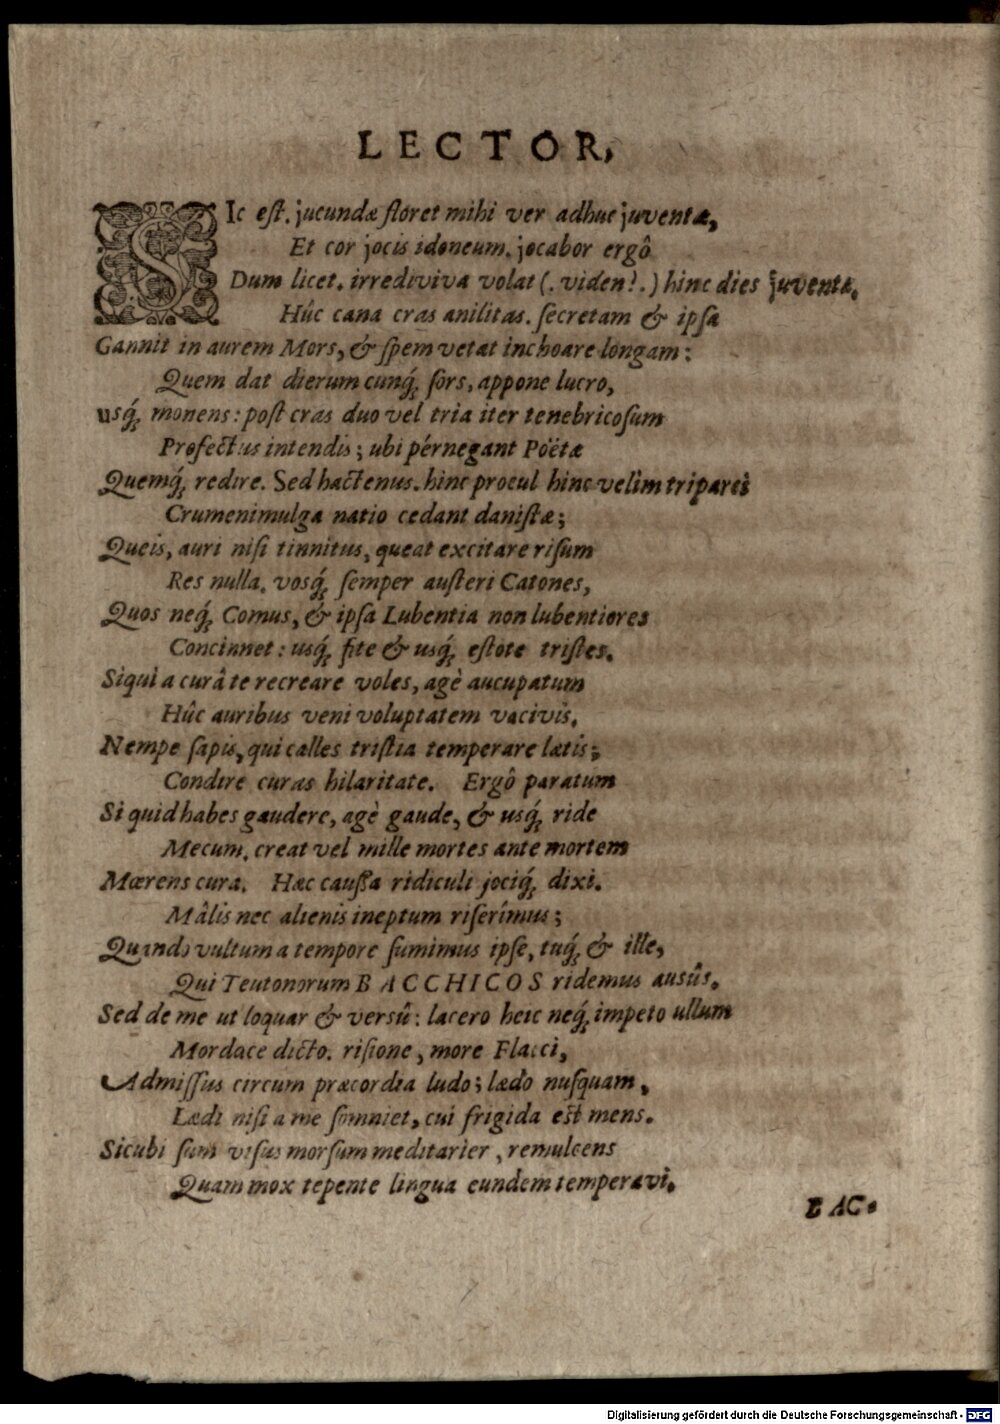 LECTOR,
SIc eſt. jucundæ floret mihi ver adhuc juventæ,
Et cor jocis idoneum. jocabor ergô
Dum licet. irrediviva volat (. viden?.) hinc dies juventæ.
Hûc cana cras anilitas. ſecretam & ipſa
Gannit in aurem Mors, & ſpem vetat inchoare longam:
Quem dat dierum cunq́; ſors, appone lucro,
usq́; monens: poſt cras duo vel tria iter tenebricoſum
Profectus intendis; ubi pérnegant Poëtæ
Quemq́; redire. Sed hactenus. hinc procul hinc velim triparcì
Crumenimulga natio cedant daniſtæ;
Queis, auri niſi tinnitus, queat excitare riſum
Res nulla. vosq́; ſemper auſteri Catones,
Quos neq́; Comus, & ipſa Lubentia non lubentiores
Concinnet: usq́; ſite & usq́; eſtote triſtes.
Siqui a curâ te recreare voles, agè aucupatum
Hûc auribus veni voluptatem vacivis.
Nempe ſapis, qui calles triſtia temperare lætis;
Condire curas hilaritate. Ergô paratum
Si quid habes gaudere, agè gaude, & usq́; ride
Mecum. creat vel mille mortes ante mortem
Mœrens cura. Hæc cauſſa ridiculi jociq́; dixi.
Mâlis nec alienis ineptum riſerîmus;
Quando vultum a tempore ſumimus ipſe, tuq́; & ille,
Qui Teutonorum BACCHICOS ridemus ausûs.
Sed de me ut loquar & versû: lacero heic neq́; impeto ullum
Mordace dicto. riſione, more Flacci,
Admiſſus circum præcordia ludo; lædo nuſquam,
Lædi niſi a me ſomniet, cui frigida eſt mens.
Sicubi ſum viſus morſum meditarier, remulcens
Quam mox tepente lingua eundem temperavi.
BAC-
Digitalisierung gefördert durch die Deutsche Forschungsgemeinschaft - DFG